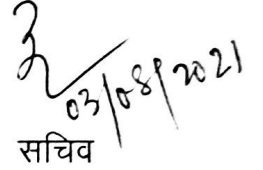 03/08/2021
सचिव